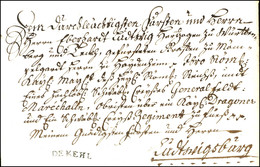 Dem Durchleüchtigsten Fürsten und Herrn
Herrn Eberhardt Ludwig Herzogen zu Württem-
berg und Teckh, gefürsteten Graffen zu Mömp-
pelgardt Herrn zu Heydenheim, Ihro Röm.
Kayl. Mayst. des Heyl. Röm. Reichs, und
Löbl. Schwäb. Crayses General feldt
Marchalln, Obristen über ein Kayl. Dragoner
und Ein Schwäb. Crayß Regiment zu fueß p
Meinem Gnädigsten Fürsten und Herrn
Ludwigsburg
DE KEHL